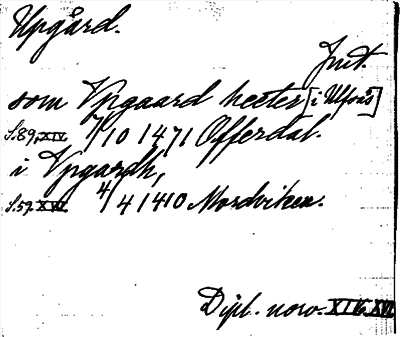 Upgård.
Jmt.
som Vpgaard heeter [i Ulfoås]
s.89, XIV. 7/10 1471 Offerdal.
i Vpgardh,
s.59. XVI. 4/4 1410 Mordviken.
Dipl. norv. XIV. XVI.